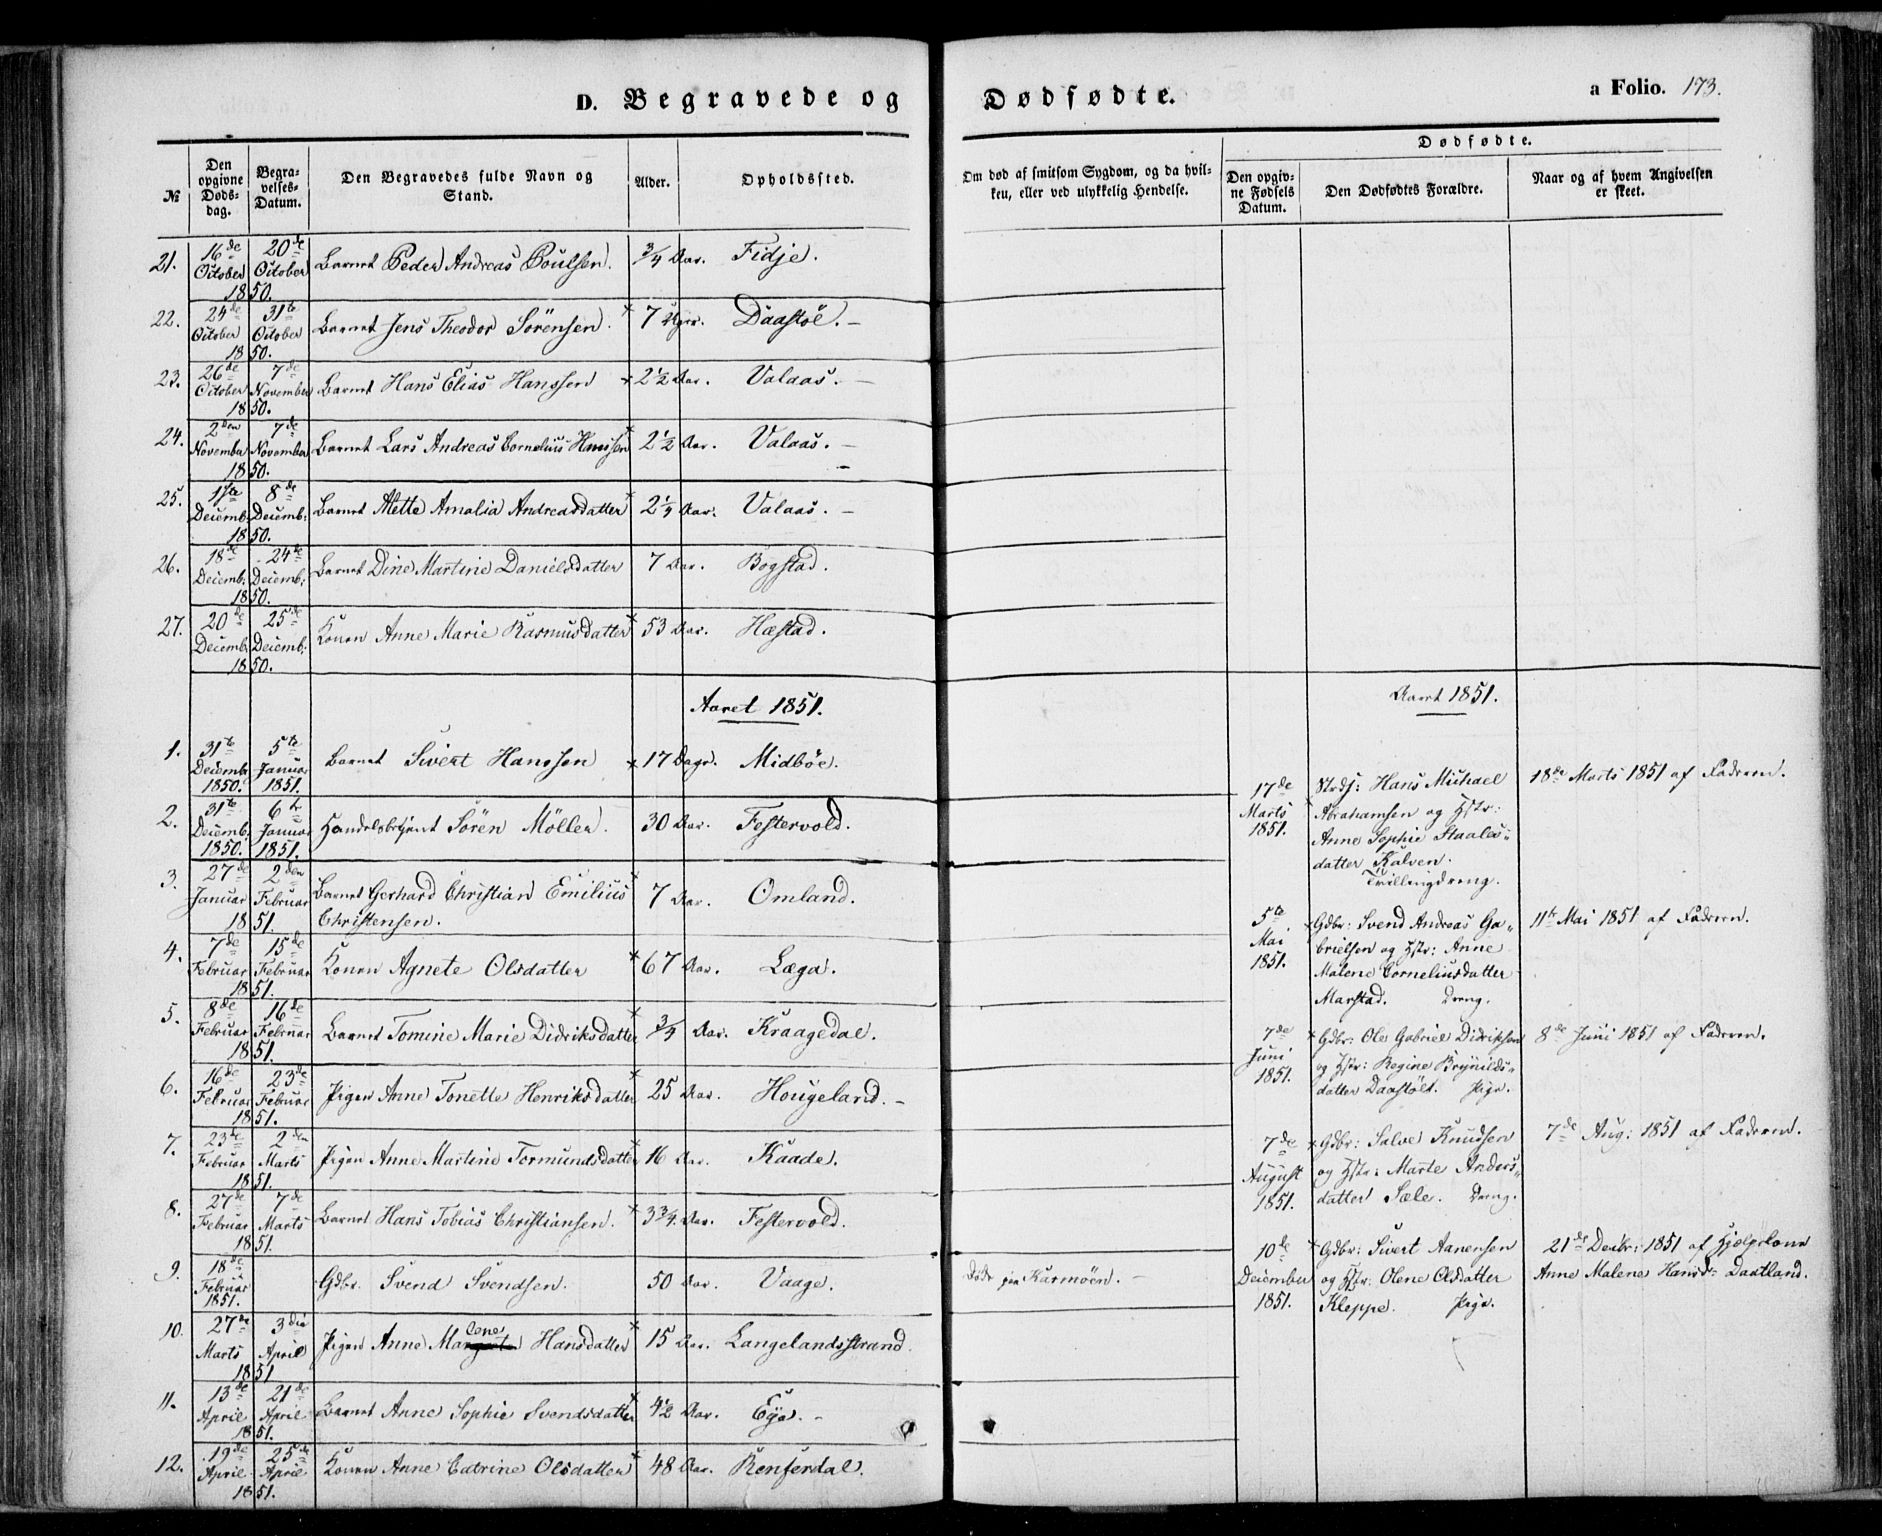 D. Begravede og Dødfødte. a Folio. 173.
№ Den opgivne Døds-dag. Begra-velses-Datum. Den Begravedes fulde Navn og Stand. Alder. Opholdssted.
Om død af smitsom Sygdom, og da hvil-ken, eller ved ulykkelig Hendelse.
Dødfødte.
Den opgiv-ne Fødsels Datum. Den Dødfødtes Forældre. Naar og af hvem Angivelsen er skeet.
21. 16de October 20de October 1850. Barnet Peder Andreas Poulsen. 3/4 Aar. Fidje.
22. 24de October 31te October 1850. Barnet Jens Theodor Sörensen. 7 Uger. Daastöl.
23. 26de October 7de November 1850. Barnet Hans Elias Hanssen 2 1/2 Aar. Valaas.
24. 2den November 7de November 1850. Barnet Lars Andreas Cornelius Hanssen 2 1/2 Aar. Valaas.
25. 1ste Decemb: 8de Decemb: 1850. Barnet Mette Amalia Andreasdatter 2 1/4 Aar. Valaas.
26. 18de Decemb: 24de Decemb: 1850. Barnet Dine Martine Danielsdatter 7 Aar. Bogstad.
27. 20de Decemb: 25de Decemb: 1850. Konen Anne Marie Rasmusdatter 53 Aar. Hæstad.
Aaret 1851.
1. 31te Decemb: 1850. 5te Januar 1851. Barnet Sivert Hanssen 17 Dage. Midböe.
2. 31te Decemb. 1850. 6te Januar 1851. Handelsbetjent Sören Möller. 30 Aar. Festervold.
3. 27de Januar 2den Februar 1851. Barnet Gerhard Christian Emilius
Christensen. 7 Aar. Omland.
4. 7de Februar 15de Februar 1851. Konen Agnete Olsdatter 67 Aar. Læga.
5. 8de Februar 16de Februar 1851. Barnet Tomine Marie Didriksdatter 3/4 Aar. Kraagedal.
6. 16de Februar 23de Februar 1851. Pigen Anne Tonette Henriksdatter 25 Aar. Hougeland.
7. 23de Februar 2den Marts 1851. Pigen Anne Martine Tormundsdatter 16 Aar. Kaade.
8. 27de Februar 7de Marts 1851. Barnet Hans Tobias Christiansen. 3 3/4 Aar. Festervold.
9. 18de Februar 1851. Gdbr. Svend Svendsen. 50 Aar. Vaage. Döde paa Karmöen.
10. 27de Marts 3die April 1851 Pigen Anne Margrete lene Hansdatter 15 Aar. Langelandsstrand.
11. 13de April 21de April 1851. Barnet Anne Sophie Svendsdatter 4 1/2 Aar. Eya.
12. 19de April 25de April 1851. Konen Anne Catrine Olsdatter 48 Aar. Renserdal.
Aaret 1851.
17de Marts 1851. Strds: Hans Michael 18de Marts 1851 af Faderen.
Abrahamsen og Hstr:
Anne Sophie Staales-
datter Kalven.
Tvillingdreng.
5te Mai 1851. Gdbr: Svend Andreas Ga- 11te Mai 1851 af Faderen.
brielsen og Hstr: Anne
Malene Corneliusdatter
Marstad. Dreng.
7de Juni 1851. Gdbr: Ole Gabriel Didriksen 8de Juni 1851 af Faderen.
og Hstr: Regine Brynilds-
datter Daastöl. Pige.
7de August 1851. Gdbr: Salve Knudsen 7de Aug: 1851 af Faderen.
og Hstr: Marte Anders-
datter Sæle. Dreng.
10de December 1851. Gdbr: Sivert Aanensen 21de Decbr: 1851 af Hjælpekone
og Hstr: Olene Olsdatter Anne Malene Hansd: Dautland.
Kleppe. Pige.